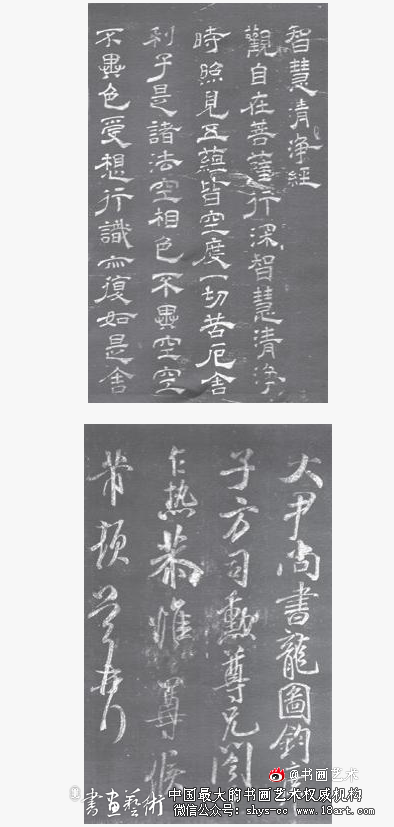 智慧清淨經
觀自在菩薩行深智慧清淨
時照見五蘊皆空度一切苦厄舍
利子是諸法空相色不異空空
不異色受想行識亦復如是舍
大尹尚書龍圖鈞
子方司勳尊兄閣
乍熱恭惟尊候
芾頓
@书画艺术
書畫藝術
中国最大的书画艺术权威机构
微信公众号: shys-cc www.18art.com